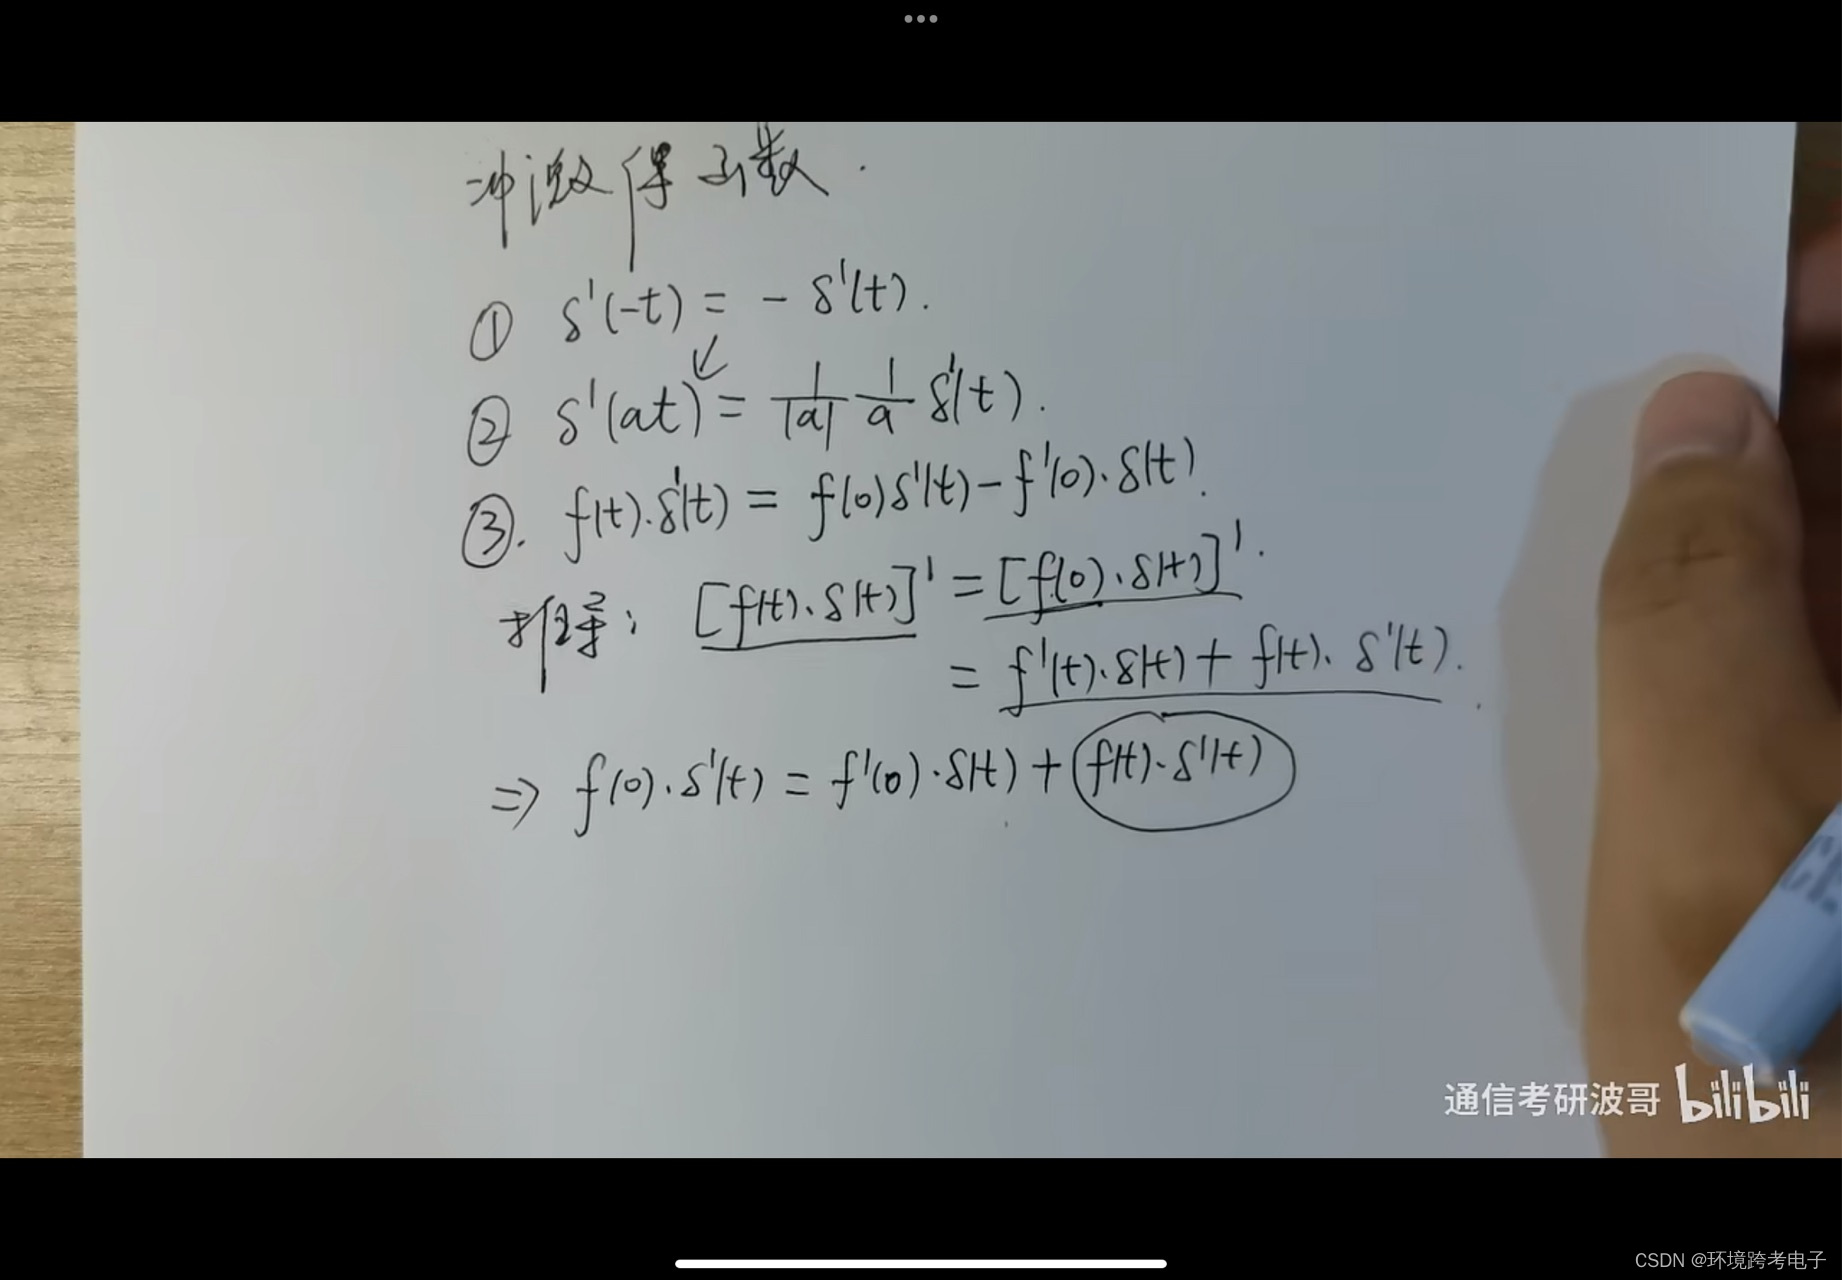 冲激偶函数.
① δ'(-t) = - δ'(t).
② δ'(at) = 1/|a| 1/a δ'(t).
③. f(t).δ'(t) = f(0)δ'(t) - f'(0).δ(t).
推导: [f(t).δ(t)]' = [f(0).δ(t)]'.
= f'(t).δ(t) + f(t). δ'(t).
⇒ f(0).δ'(t) = f'(0).δ(t) + f(t).δ'(t)
通信考研波哥 bilibili
CSDN @环境跨考电子